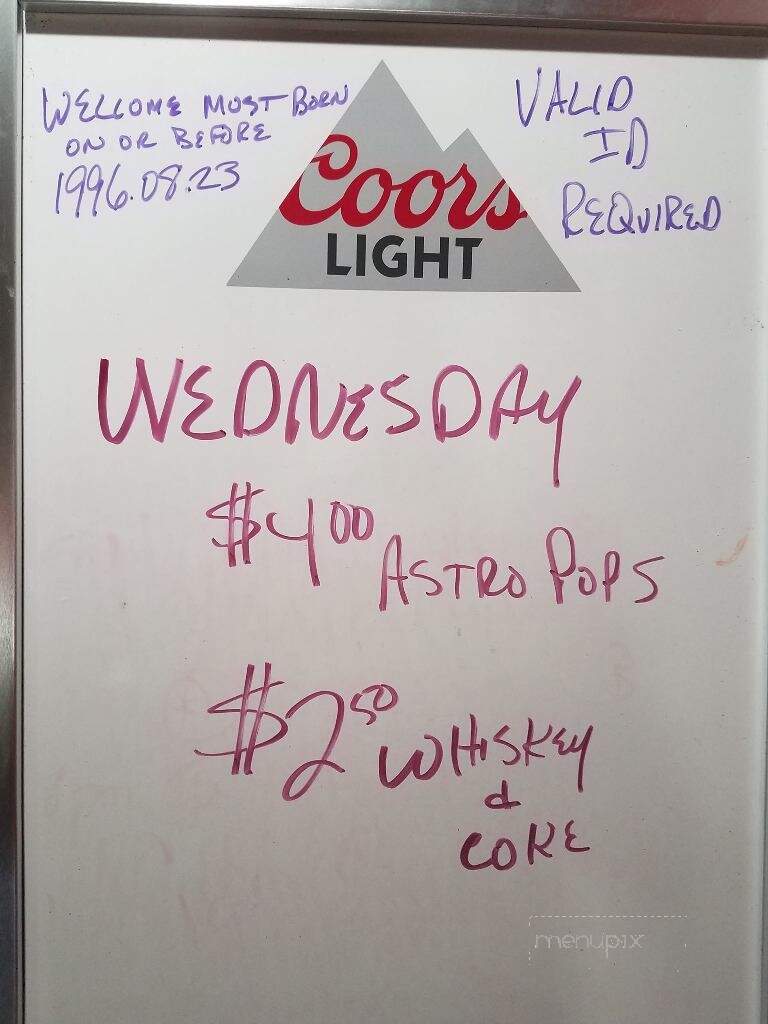 WELCOME MUST BORN
ON OR BEFORE
1996.08.23
VALID
ID
REQUIRED
Coors
LIGHT
WEDNESDAY
$4.00 ASTRO POPS
$2.50 WHISKEY
&
COKE
menupix